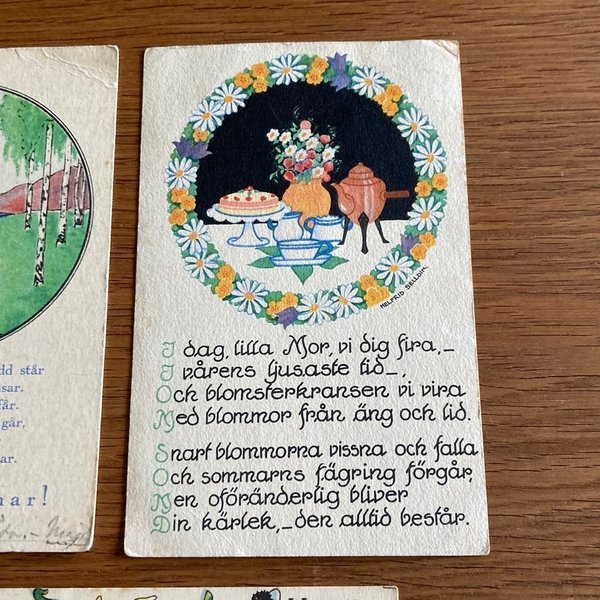 HELFRID SELLDIN
I dag, lilla Mor, vi dig fira,–
I vårens ljusaste tid–,
Och blomsterkransen vi vira
Med blommor från äng och lid.
Snart blommorna vissna och falla
Och sommarns fägring förgår,
Men oföränderlig bliver
Din kärlek,–den alltid består.
dd står
sar.
får.
går,
ar.
nar!